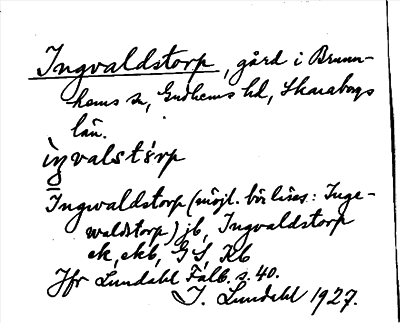 Ingvaldstorp, gård i Brunn-
hems sn, Gudhems hd, Skaraborgs
län.
ìŋvalstórp
Ingwaldstorp (möjl. bör läses: Inge-
waldstorp) jb, Ingvaldstorp
ek, ekb, GS, Kb
Jfr Lundahl Falb. s. 40.
I. Lundahl 1927.